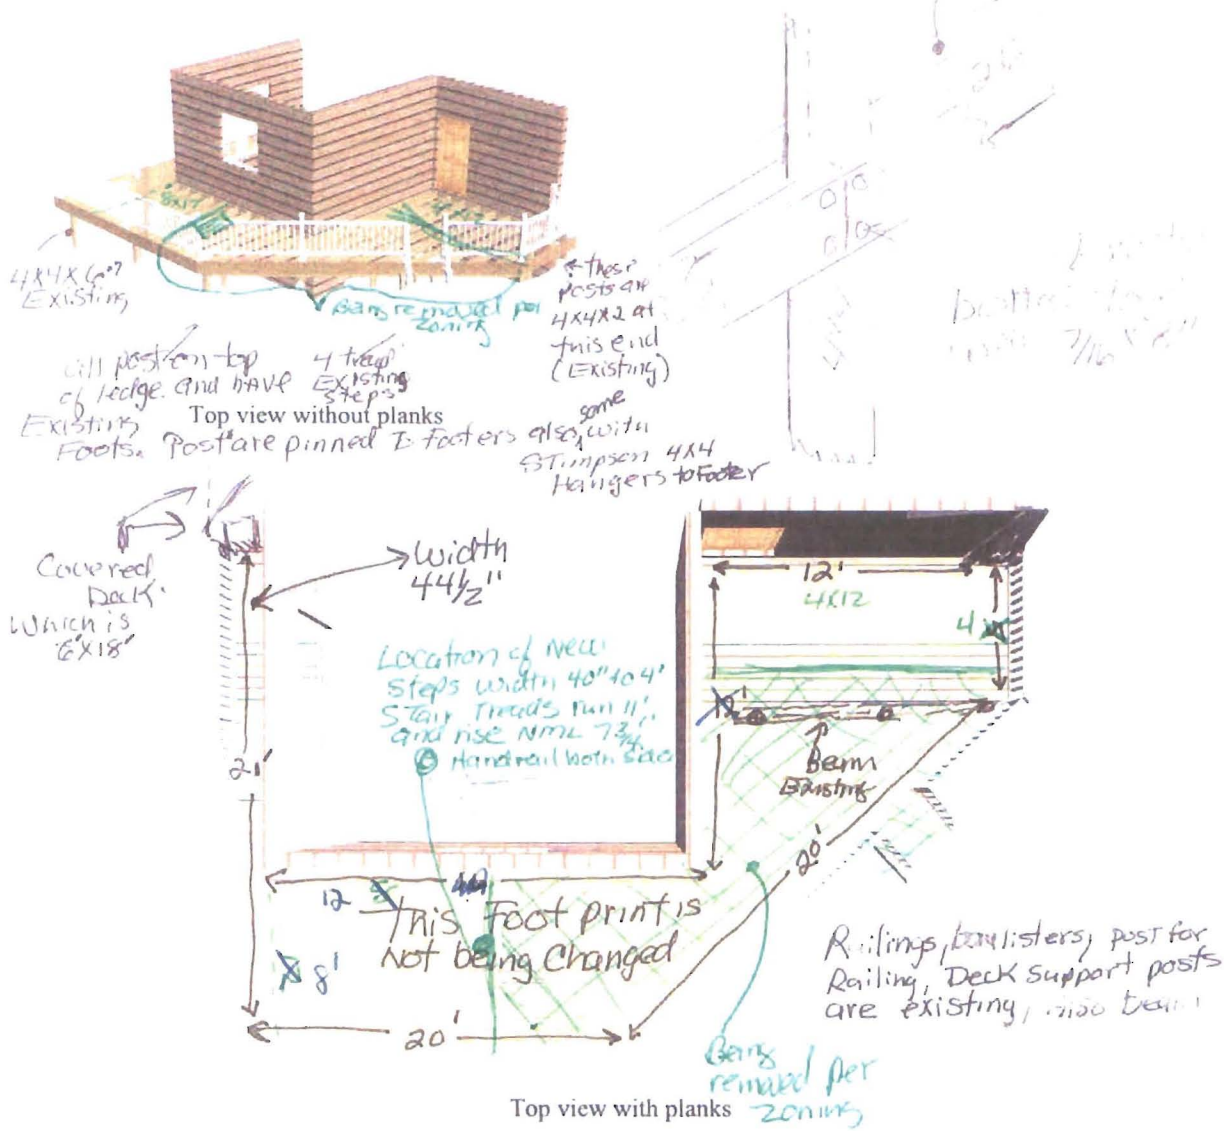 8x17
4x12
4x4x6"?
Existing
Being removed per
zoning
← these
posts are
4x4x2 at
this end
(Existing)
all post on top
of ledge. and have
Existing
Foots. Post are pinned To footers also, some with
4 tread
Existing
steps
Top view without planks
STimpson 4x4
Hangers to Footer
7/16 x
Covered
Deck.
Which is
6'x18'
Width
44 1/2"
12'
4x12
4
Location of New
Steps width 40" to 4'
Stair Treads run 11"
and rise NML 7 3/4"
Handrail both sides
12'
Beam
Existing
21'
20'
12
This Foot print is
Not being Changed
8'
20'
Railings, bannisters, post for
Railing, Deck Support posts
are existing, also beam
Being
removed per
zoning
Top view with planks